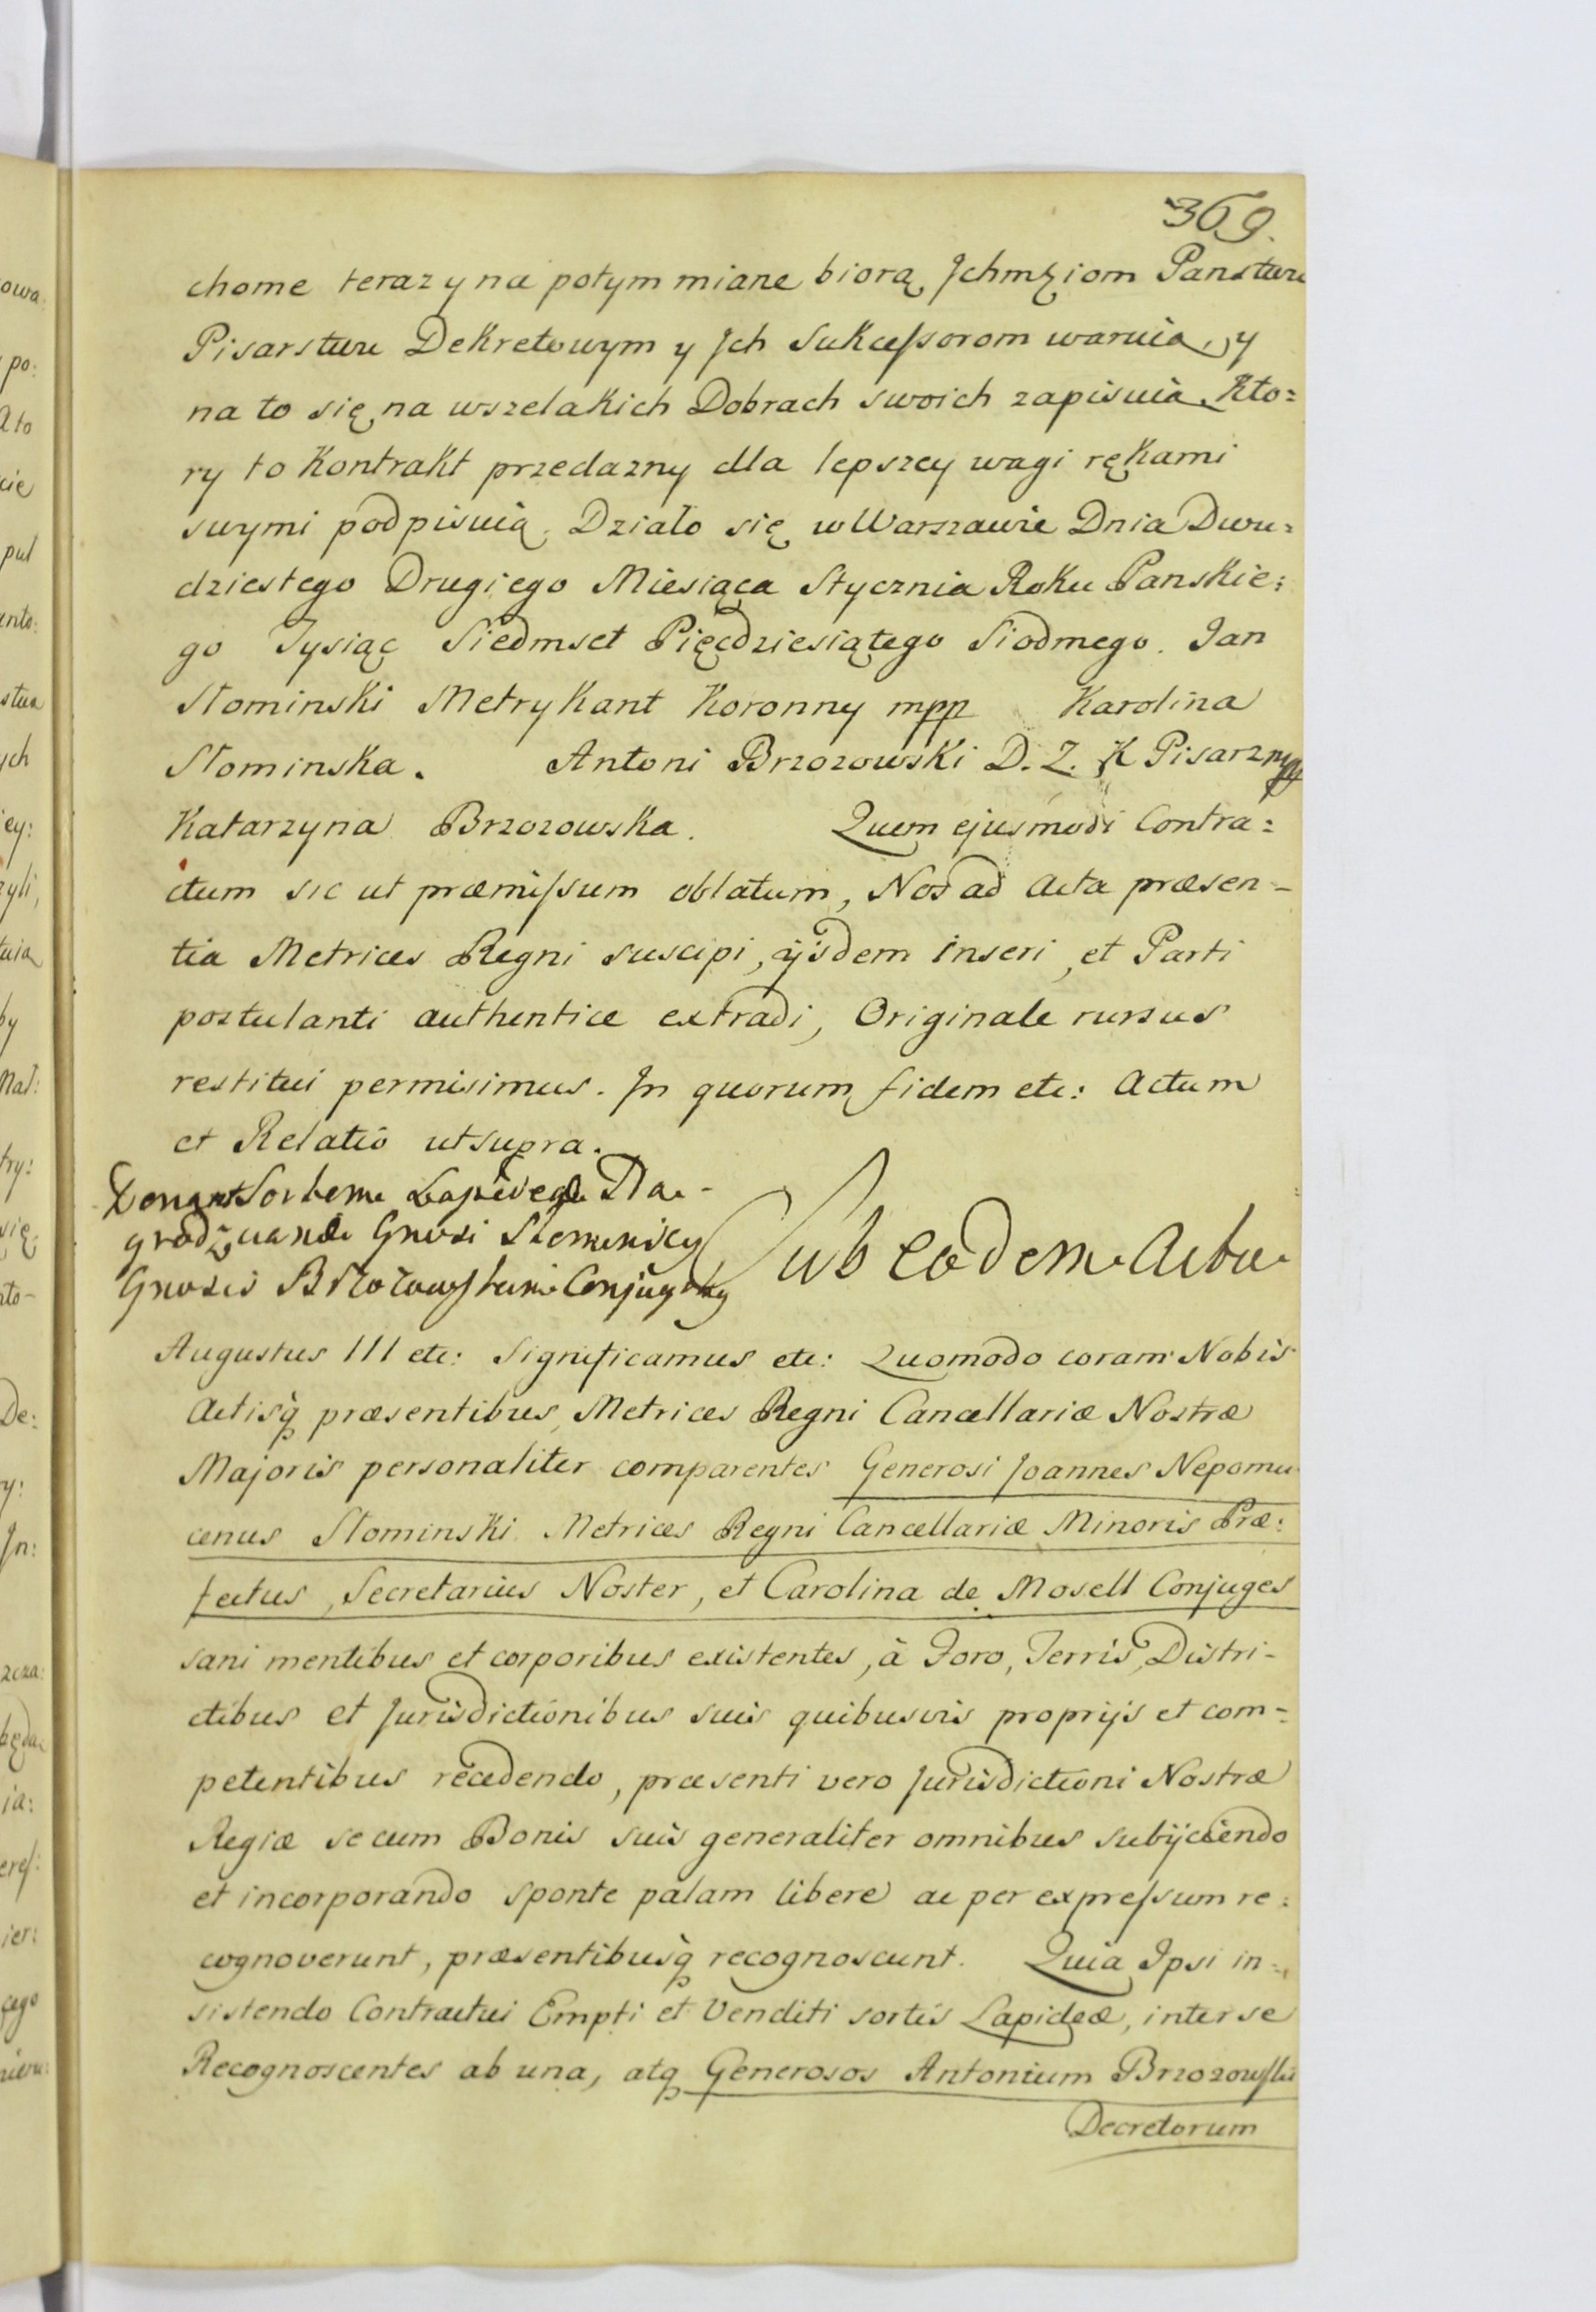 369.
chome teraz y na potym miane biorą, Ichmćiom Panstwu
Pisarstwu Dekretowym y Ich Sukcessorom waruią, y
na to się na wszelakich Dobrach swoich zapisuią. Kto=
ry to Kontrakt przedazny dla lepszey wagi rękami
swymi podpisuią. Działo się w Warszawie Dnia Dwu=
dziestego Drugiego Miesiąca Stycznia Roku Panskie=
go Tysiąc Siedmset Pięcdziesiątego Siodmego. Jan
Słominski Metrykant Koronny mpp Karolina
Słominska. Antoni Brzozowski D. Z. K Pisarz mpp
Katarzyna Brzozowska. Quem ejusmodi Contra=
ctum sic ut præmissum oblatum, Nos ad Acta præsen-
tia Metrices Regni suscipi, ijsdem inseri, et Parti
postulanti authentice extradi, Originale rursus
restitui permisimus. In quorum fidem etc: Actum
et Relatio ut supra.
Gnosi Słominscy
Gnosis Conjugibus
Sub eodem Actu
Augustus III etc: Significamus etc: Quomodo coram Nobis
Actisq̃ præsentibus Metrices Regni Cancellariæ Nostræ
Majoris personaliter comparentes Generosi Joannes Nepomu
cenus Słominski Metrices Regni Cancellariæ Minoris Præ=
fectus, Secretarius Noster, et Carolina de Mosell Conjuges
sani mentibus et corporibus existentes, à Foro, Terris, Distri-
ctibus et Jurisdictionibus suis quibusvis proprijs et com=
petentibus recedendo, præsenti vero Jurisdictioni Nostræ
Regiæ se cum Bonis suis generaliter omnibus subijciendo
et incorporando sponte palam libere ac per expressum re=
cognoverunt, præsentibusq̃ recognoscunt. Quia Ipsi in=
sistendo Contractui Empti et Venditi sortis Lapideæ, inter se
Recognoscentes ab una, atq̃ Generosos Antonium Brzozowski
Decretorum